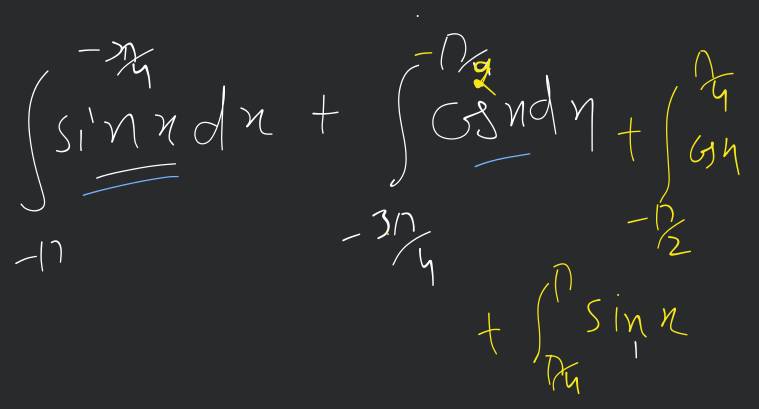 ∫_{-π}^{-3π/4} sin x dx + ∫_{-3π/4}^{-π/2} cos x dx + ∫_{-π/2}^{π/4} cos x
+ ∫_{π/4}^{π} sin x